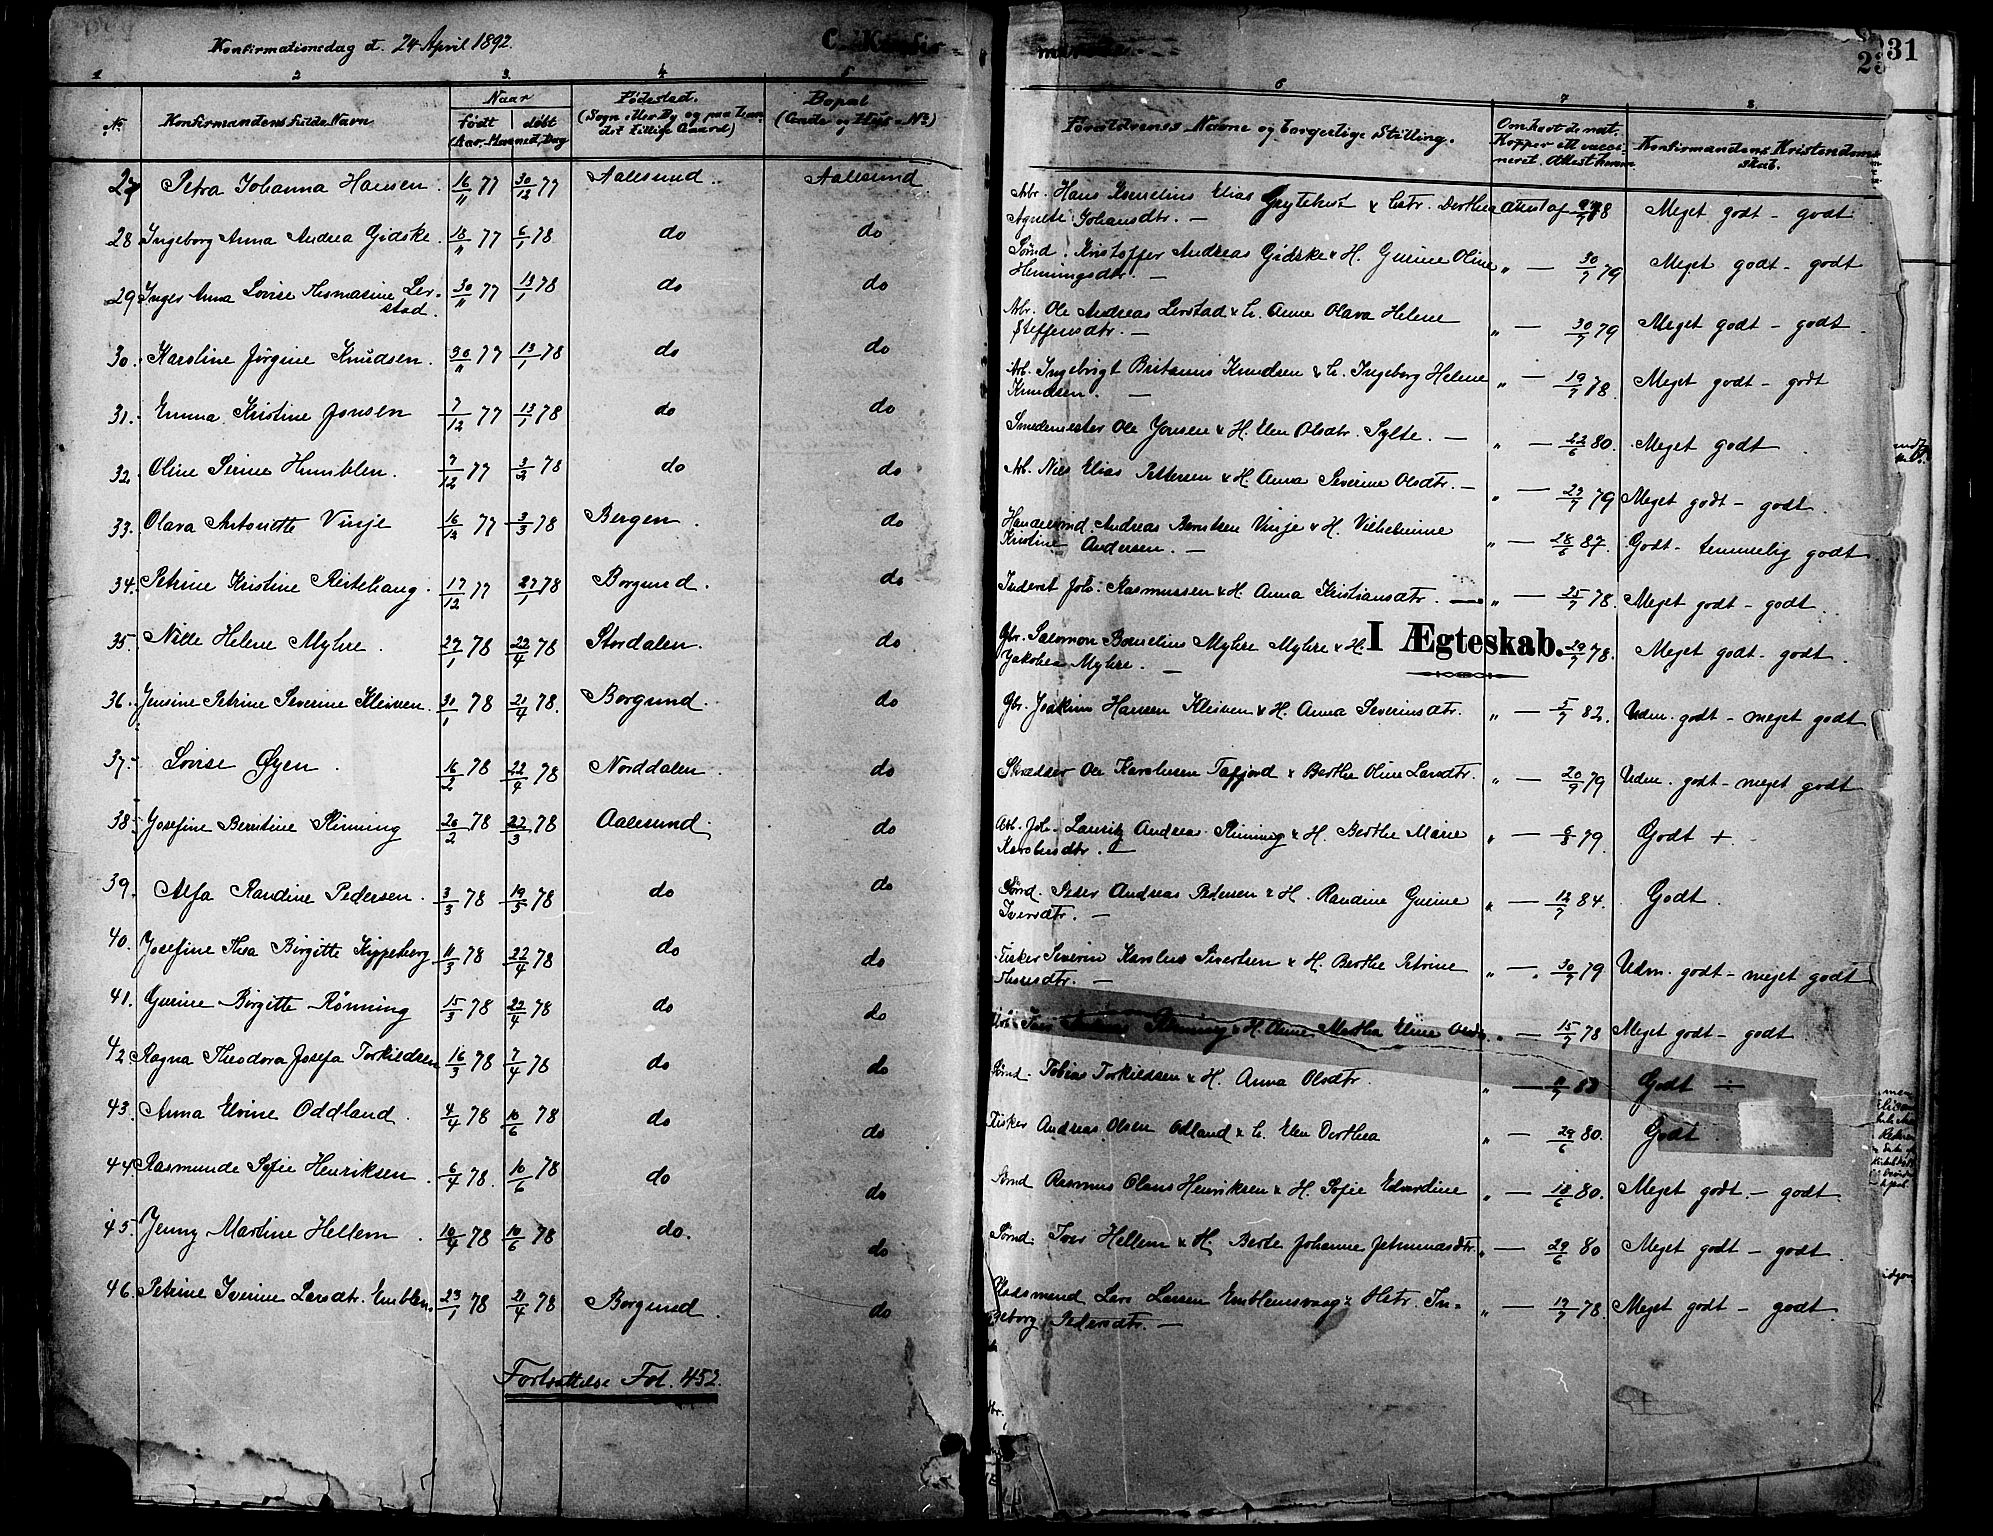 Konfirmationsdag d. 24 April 1892.
C. Konfir-
231
1 2 3. 4 5 6 7 8
No. Konfirmandens fulde Navn
Naar
født døbt
(Aar, Maaned, Dag
Fødested.
(Sogn eller By og paa Lan-
det tillige Gaard)
Bopæl
(Gade og Hus-No)
Forældrenes Navne og borgerlige Stilling.
Om havt de nat.
Kopper ell. vacci-
neret. Attest herom
Konfirmandens Kristendoms-
skab.
27 Petra Johanna Hansen. 16/11 77 30/12 77 Aalesund. Aalesund Arb. Hans Kornelius Elias Grytehest & Hstr. Dorthea Attest af 78 Meget godt - godt
Agnete Johansdtr. —
28 Ingeborg Anna Andrea Gidske. 18/11 77 6/1 78 do do Sømd. Kristoffer Andreas Gidske & H. Gurine Oline „ — 30/7 79 Meget godt - godt
Henningsdtr. —
29 Inger Anna Lovise Thomasine Ler- 30/11 77 13/1 78 do do Arb. Ole Andreas Lerstad & H. Anne Olava Helene „ — 30/7 79 Meget godt - godt
stad. Steffensdtr. —
30. Karoline Jørgine Knudsen. 30/11 77 13/1 78 do do Arb. Ingebrigt Britanus Knudsen & H. Ingeborg Helene „ — 19/7 78. Meget godt - godt
Knudsen. —
31. Emma Kristine Jonsen 7/12 77 13/1 78 do do Smedemester Ole Jonsen & H. Elen Olsdtr. Sylte. — „ — 22/6 80. Meget godt
32. Oline Serine Humblen. 7/12 77 3/2 78 do do Arb. Niels Elias Pettersen & H. Anna Severine Olsdtr. — „ — 23/7 79 Meget godt - godt.
33. Olava Antonette Vinje 16/12 77 3/3 78 Bergen. do Handelsmd. Andreas Berntsen Vinje & H. Vilhelmine „ — 28/6 87. Godt - temmelig godt
Kristine Andersen. —
34. Petrine Kristine Ristehaug. 17/12 77 27/1 78 Borgund. do Inderst Joh. Rasmussen & H. Anna Kristiansdtr. — „ — 25/7 78. Meget godt - godt.
35. Nille Helene Myhre. 27/1 78 22/4 78 Stordalen. do Gbr. Salomon Bornelius Myhre Myhre & H. I Ægteskab. 29/7 78. Meget godt - godt.
Jakobea Myhre. —
36. Jensine Petrine Severine Kleiven. 31/1 78 21/4 78. Borgund. do Gbr. Joakim Hansen Kleiven & H. Anna Severinsdtr. „ — 5/7 82. Udm. godt - meget godt
37. Lovise Øyen. 16/2 78 22/4 78 Norddalen. do Skrædder Ole Karolusen Tafjord & Berthe Oline Larsdtr. „ — 20/9 79 Udm. godt - meget godt
38. Josefine Berntine Slinning 26/2 78 22/3 78 Aalesund. do Arb. Joh. Lauritz Andreas Slinning & H. Berthe Marie „ — 6/8 79. Godt +.
Karolusdtr. —
39. Alfa Randine Pedersen. 3/3 78 19/5 78 do do Sømd. Peter Andreas Pedersen & H. Randine Gurine „ — 12/7 84. Godt.
Iversdtr. —
40. Josefine Thea Birgitte Kippeberg 11/3 78 22/4 78 do do Fisker Severin Karolus Sivertsen & H. Berthe Petrine „ — 30/7 79 Udm. godt - meget godt
—
41. Gurine Birgitte Rønning 15/3 78 22/4 78 do do Rønning & H. Anne Martha Eline „ — 15/7 78 Meget godt - godt
42. Ragna Theodora Josefa Torkildsen 16/3 78 7/4 78 do do Sømd. Tobias Torkildsen & H. Anna Olsdtr. „ — Godt ÷
43. Anna Elvine Oddland. 4/4 78 10/6 78 do do Fisker Andreas Olsen Odland & H. Elen Dorthea „ — 29/6 80. Godt
44. Rasmunde Sofie Henriksen. 6/4 78. 10/6 78 do do Sømd Rasmus Olaus Henriksen & H. Sofie Edvardine „ — 18/6 80. Meget godt - godt.
45. Jenny Martine Hellem. 10/4 78 10/6 78 do. do Sømd. Iver Hellem & H. Berte Johanne Jetmundsdtr. „ — 29/6 80 Meget godt - godt.
46. Petrine Iverine Larsdtr. Emblem. 23/1 78 21/4 78 Borgund. do Pladsmand Lars Larsen Emblemsvaag & Hstr. In- „ — 19/7 78 Meget godt - godt
geborg Pedersdtr. —
Fortsættelse Fol. 452.